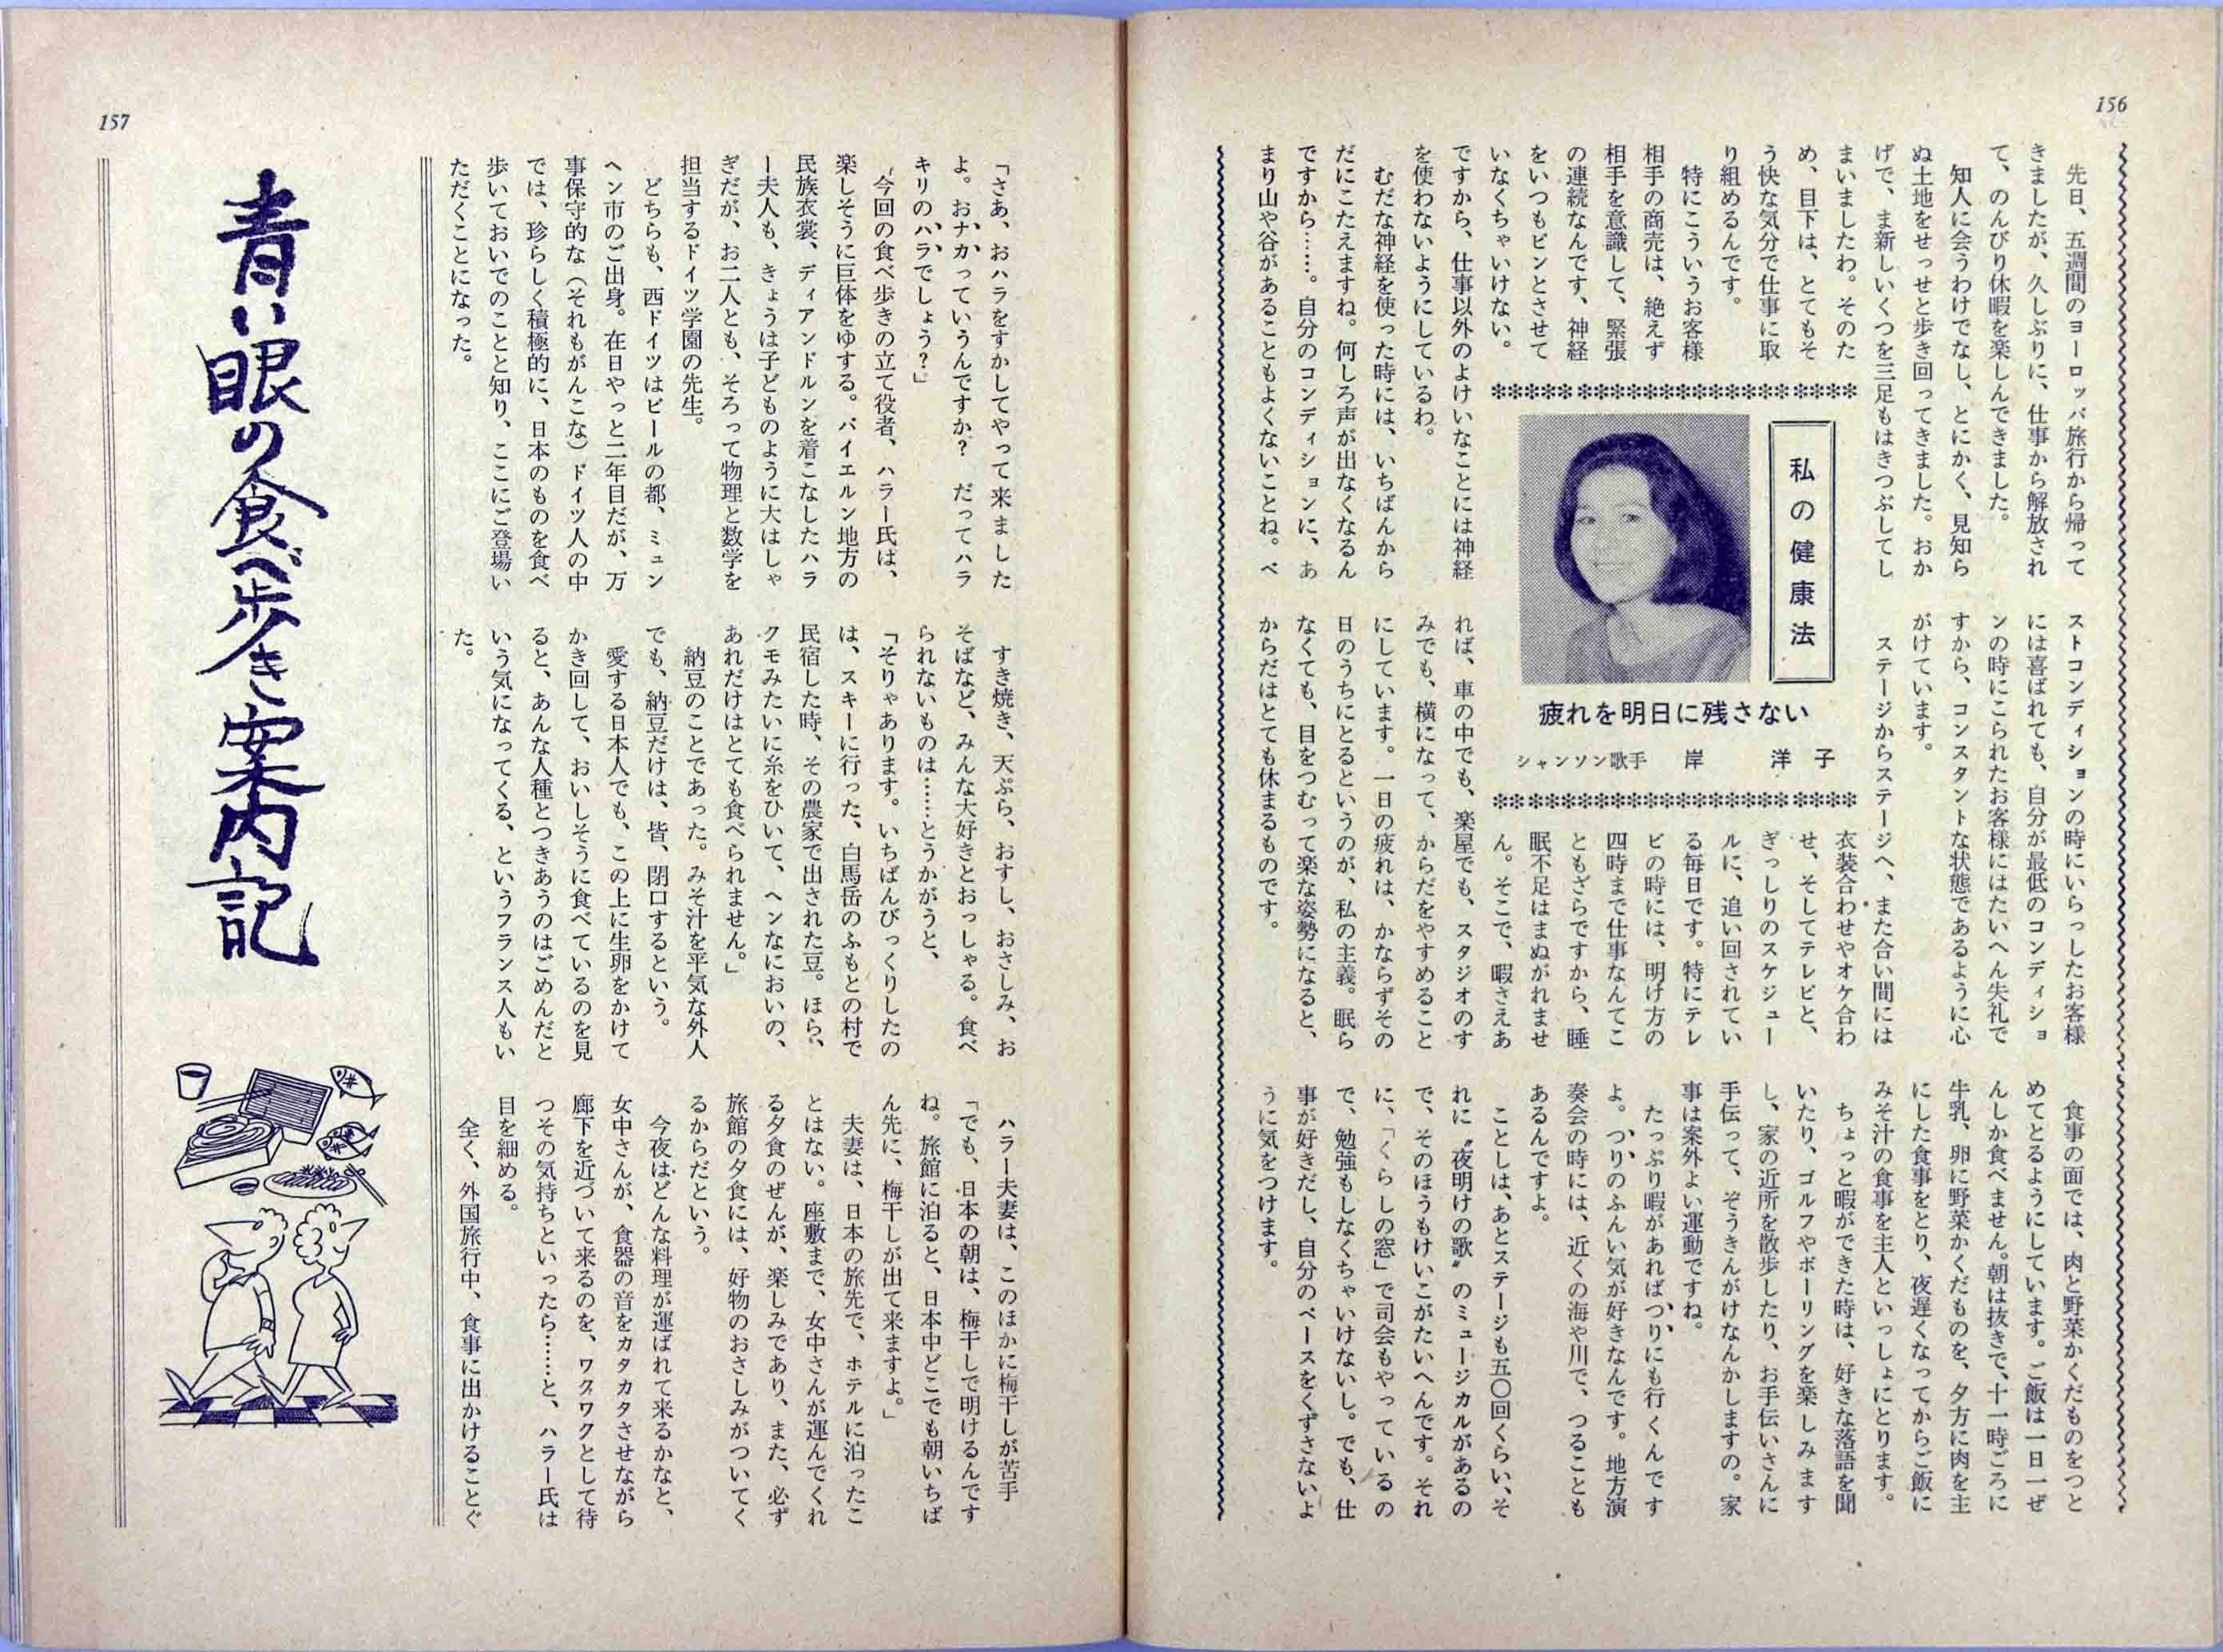 156
先日、五週間のヨーロッパ旅行から帰って
きましたが、久しぶりに、仕事から解放され
て、のんびり休暇を楽しんできました。
知人に会うわけでなし、とにかく、見知ら
ぬ土地をせっせと歩き回ってきました。おか
げで、ま新しいくつを三足もはきつぶしてし
まいましたわ。そのた
め、目下は、とてもそ
う快な気分で仕事に取
り組めるんです。
特にこういうお客様
相手の商売は、絶えず
相手を意識して、緊張
の連続なんです、神経
をいつもピンとさせて
いなくちゃいけない。
ですから、仕事以外のよけいなことには神経
を使わないようにしているわ。
むだな神経を使った時には、いちばんから
だにこたえますね。何しろ声が出なくなるん
ですから……。自分のコンディションに、あ
まり山や谷があることもよくないことね。ベ
私の健康法
疲れを明日に残さない
シャンソン歌手 岸 洋子
ストコンディションの時にいらっしたお客様
には喜ばれても、自分が最低のコンディショ
ンの時にこられたお客様にはたいへん失礼で
すから、コンスタントな状態であるように心
がけています。
ステージからステージへ、また合い間には
衣装合わせやオケ合わ
せ、そしてテレビと、
ぎっしりのスケジュー
ルに、追い回されてい
る毎日です。特にテレ
ビの時には、明け方の
四時まで仕事なんてこ
ともざらですから、睡
眠不足はまぬがれませ
ん。そこで、暇さえあ
れば、車の中でも、楽屋でも、スタジオのす
みでも、横になって、からだをやすめること
にしています。一日の疲れは、かならずその
日のうちにとるというのが、私の主義。眠ら
なくても、目をつむって楽な姿勢になると、
からだはとても休まるものです。
食事の面では、肉と野菜かくだものをつと
めてとるようにしています。ご飯は一日一ぜ
んしか食べません。朝は抜きで、十一時ごろに
牛乳、卵に野菜かくだものを、夕方に肉を主
にした食事をとり、夜遅くなってからご飯に
みそ汁の食事を主人といっしょにとります。
ちょっと暇ができた時は、好きな落語を聞
いたり、ゴルフやボーリングを楽しみます
し、家の近所を散歩したり、お手伝いさんに
手伝って、ぞうきんがけなんかしますの。家
事は案外よい運動ですね。
たっぷり暇があればつりにも行くんです
よ。つりのふんい気が好きなんです。地方演
奏会の時には、近くの海や川で、つることも
あるんですよ。
ことしは、あとステージも五〇回くらい、そ
れに〝夜明けの歌〟のミュージカルがあるの
で、そのほうもけいこがたいへんです。それ
に、「くらしの窓」で司会もやっているの
で、勉強もしなくちゃいけないし。でも、仕
事が好きだし、自分のペースをくずさないよ
うに気をつけます。
157
青い眼の食べ歩き案内記
「さあ、おハラをすかしてやって来ました
よ。おナカっていうんですか? だってハラ
キリのハラでしょう?」
今回の食べ歩きの立て役者、ハラー氏は、
楽しそうに巨体をゆする。バイエルン地方の
民族衣裳、ディアンドルンを着こなしたハラ
ー夫人も、きょうは子どものように大はしゃ
ぎだが、お二人とも、そろって物理と数学を
担当するドイツ学園の先生。
どちらも、西ドイツはビールの都、ミュン
ヘン市のご出身。在日やっと二年目だが、万
事保守的な(それもがんこな)ドイツ人の中
では、珍らしく積極的に、日本のものを食べ
歩いておいでのことと知り、ここにご登場い
ただくことになった。
すき焼き、天ぷら、おすし、おさしみ、お
そばなど、みんな大好きとおっしゃる。食べ
られないものは……とうかがうと、
「そりゃあります。いちばんびっくりしたの
は、スキーに行った、白馬岳のふもとの村で
民宿した時、その農家で出された豆。ほら、
クモみたいに糸をひいて、ヘンなにおいの、
あれだけはとても食べられません。」
納豆のことであった。みそ汁を平気な外人
でも、納豆だけは、皆、閉口するという。
愛する日本人でも、この上に生卵をかけて
かき回して、おいしそうに食べているのを見
ると、あんな人種とつきあうのはごめんだと
いう気になってくる、というフランス人もい
た。
ハラー夫妻は、このほかに梅干しが苦手
「でも、日本の朝は、梅干しで明けるんです
ね。旅館に泊ると、日本中どこでも朝いちば
ん先に、梅干しが出て来ますよ。」
夫妻は、日本の旅先で、ホテルに泊ったこ
とはない。座敷まで、女中さんが運んでくれ
る夕食のぜんが、楽しみであり、また、必ず
旅館の夕食には、好物のおさしみがついてく
るからだという。
今夜はどんな料理が運ばれて来るかなと、
女中さんが、食器の音をカタカタさせながら
廊下を近づいて来るのを、ワクワクとして待
つその気持ちといったら……と、ハラー氏は
目を細める。
全く、外国旅行中、食事に出かけることぐ